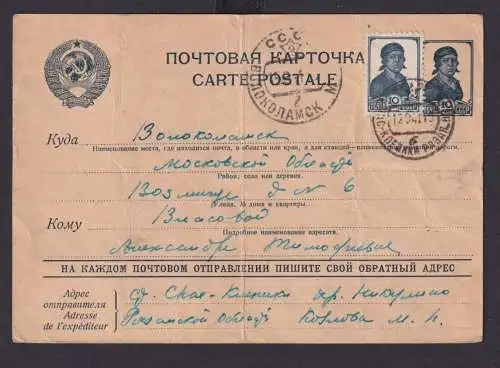 ПОЧТОВАЯ КАРТОЧКА
CARTE POSTALE
СССР
ВОЛОКОЛАМСК
Куда Волоколамск
Наименование места, где находится почта, и области или края, а для станций—наименование
Московской Области
Район, село или деревня.
д № 6
улица, № дома и квартиры.
Кому Власовой
Подробное наименование адресата.
Александре Тимофеевне
НА КАЖДОМ ПОЧТОВОМ ОТПРАВЛЕНИИ ПИШИТЕ СВОЙ ОБРАТНЫЙ АДРЕС
Адрес
отправителя
Adresse
de l'expéditeur
Никулино
Рязанской Области Козлова